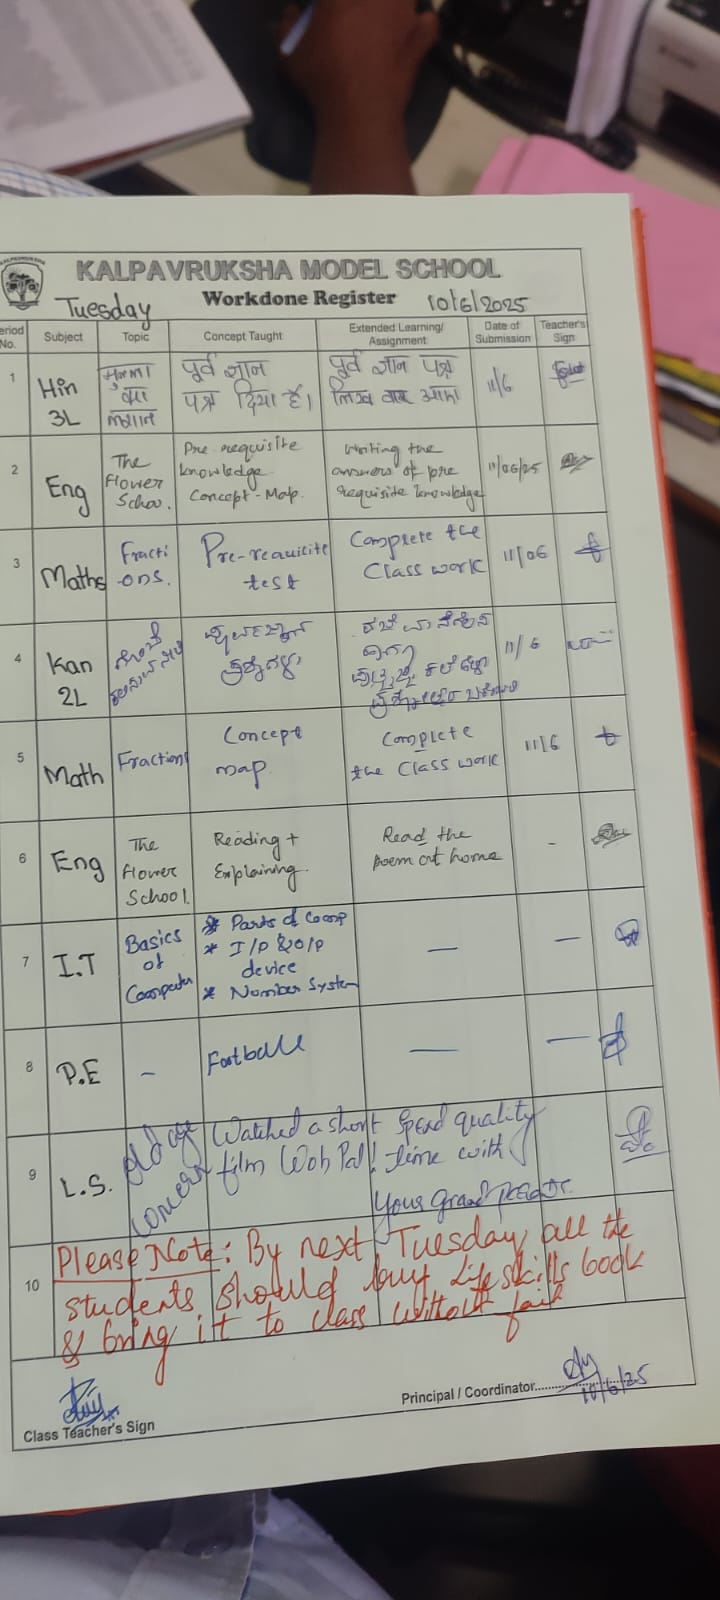 KALPAVRUKSHA MODEL SCHOOL
Tuesday Workdone Register 10/6/2025
Period No. Subject Topic Concept Taught Extended Learning/ Assignment Date of Submission Teacher's Sign
1 Hin 3L
पूर्व ज्ञान
पत्र दिया है।
पूर्व ज्ञान पत्र
लिख कर आना
11/6
2 Eng
The
Flower
School.
Pre-requisite
knowledge
Concept-Map.
Writing the
answers of pre
requisite knowledge
11/06/25
3 Maths
Fracti
ons.
Pre-requicite
test
Complete the
Class work
11/06
4 Kan 2L
11/6
5 Math
Fractions
Concept
map
Complete
the Class work
11/6
6 Eng
The
Flower
School.
Reading +
Explaining.
Read the
poem at home
-
7 I.T
Basics
of
Computer
* Parts of Comp
* I/P & O/P
device
* Number System
—
—
8 P.E
-
Football
—
—
9 L.S.
Old age
concern
Watched a short
film Woh Pal!
Spend quality
time with
Your grand parents.
10
Please Note: By next Tuesday all the
students should buy Life skills book
& bring it to class without fail
Class Teacher's Sign
Principal / Coordinator
10/6/25